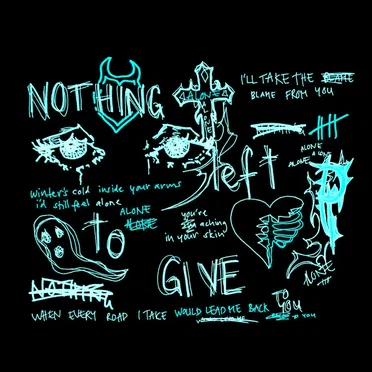 NOTHING
I'LL TAKE THE BLAME
BLAME FROM YOU
ALONE
left
ALONE
ALONE
winter's cold inside your arms
i'd still feel alone
ALONE
to
you're
aching
in your skin
GIVE
ALONE
NOTHING
TO
YOU
WHEN EVERY ROAD I TAKE WOULD LEAD ME BACK
TO YOU